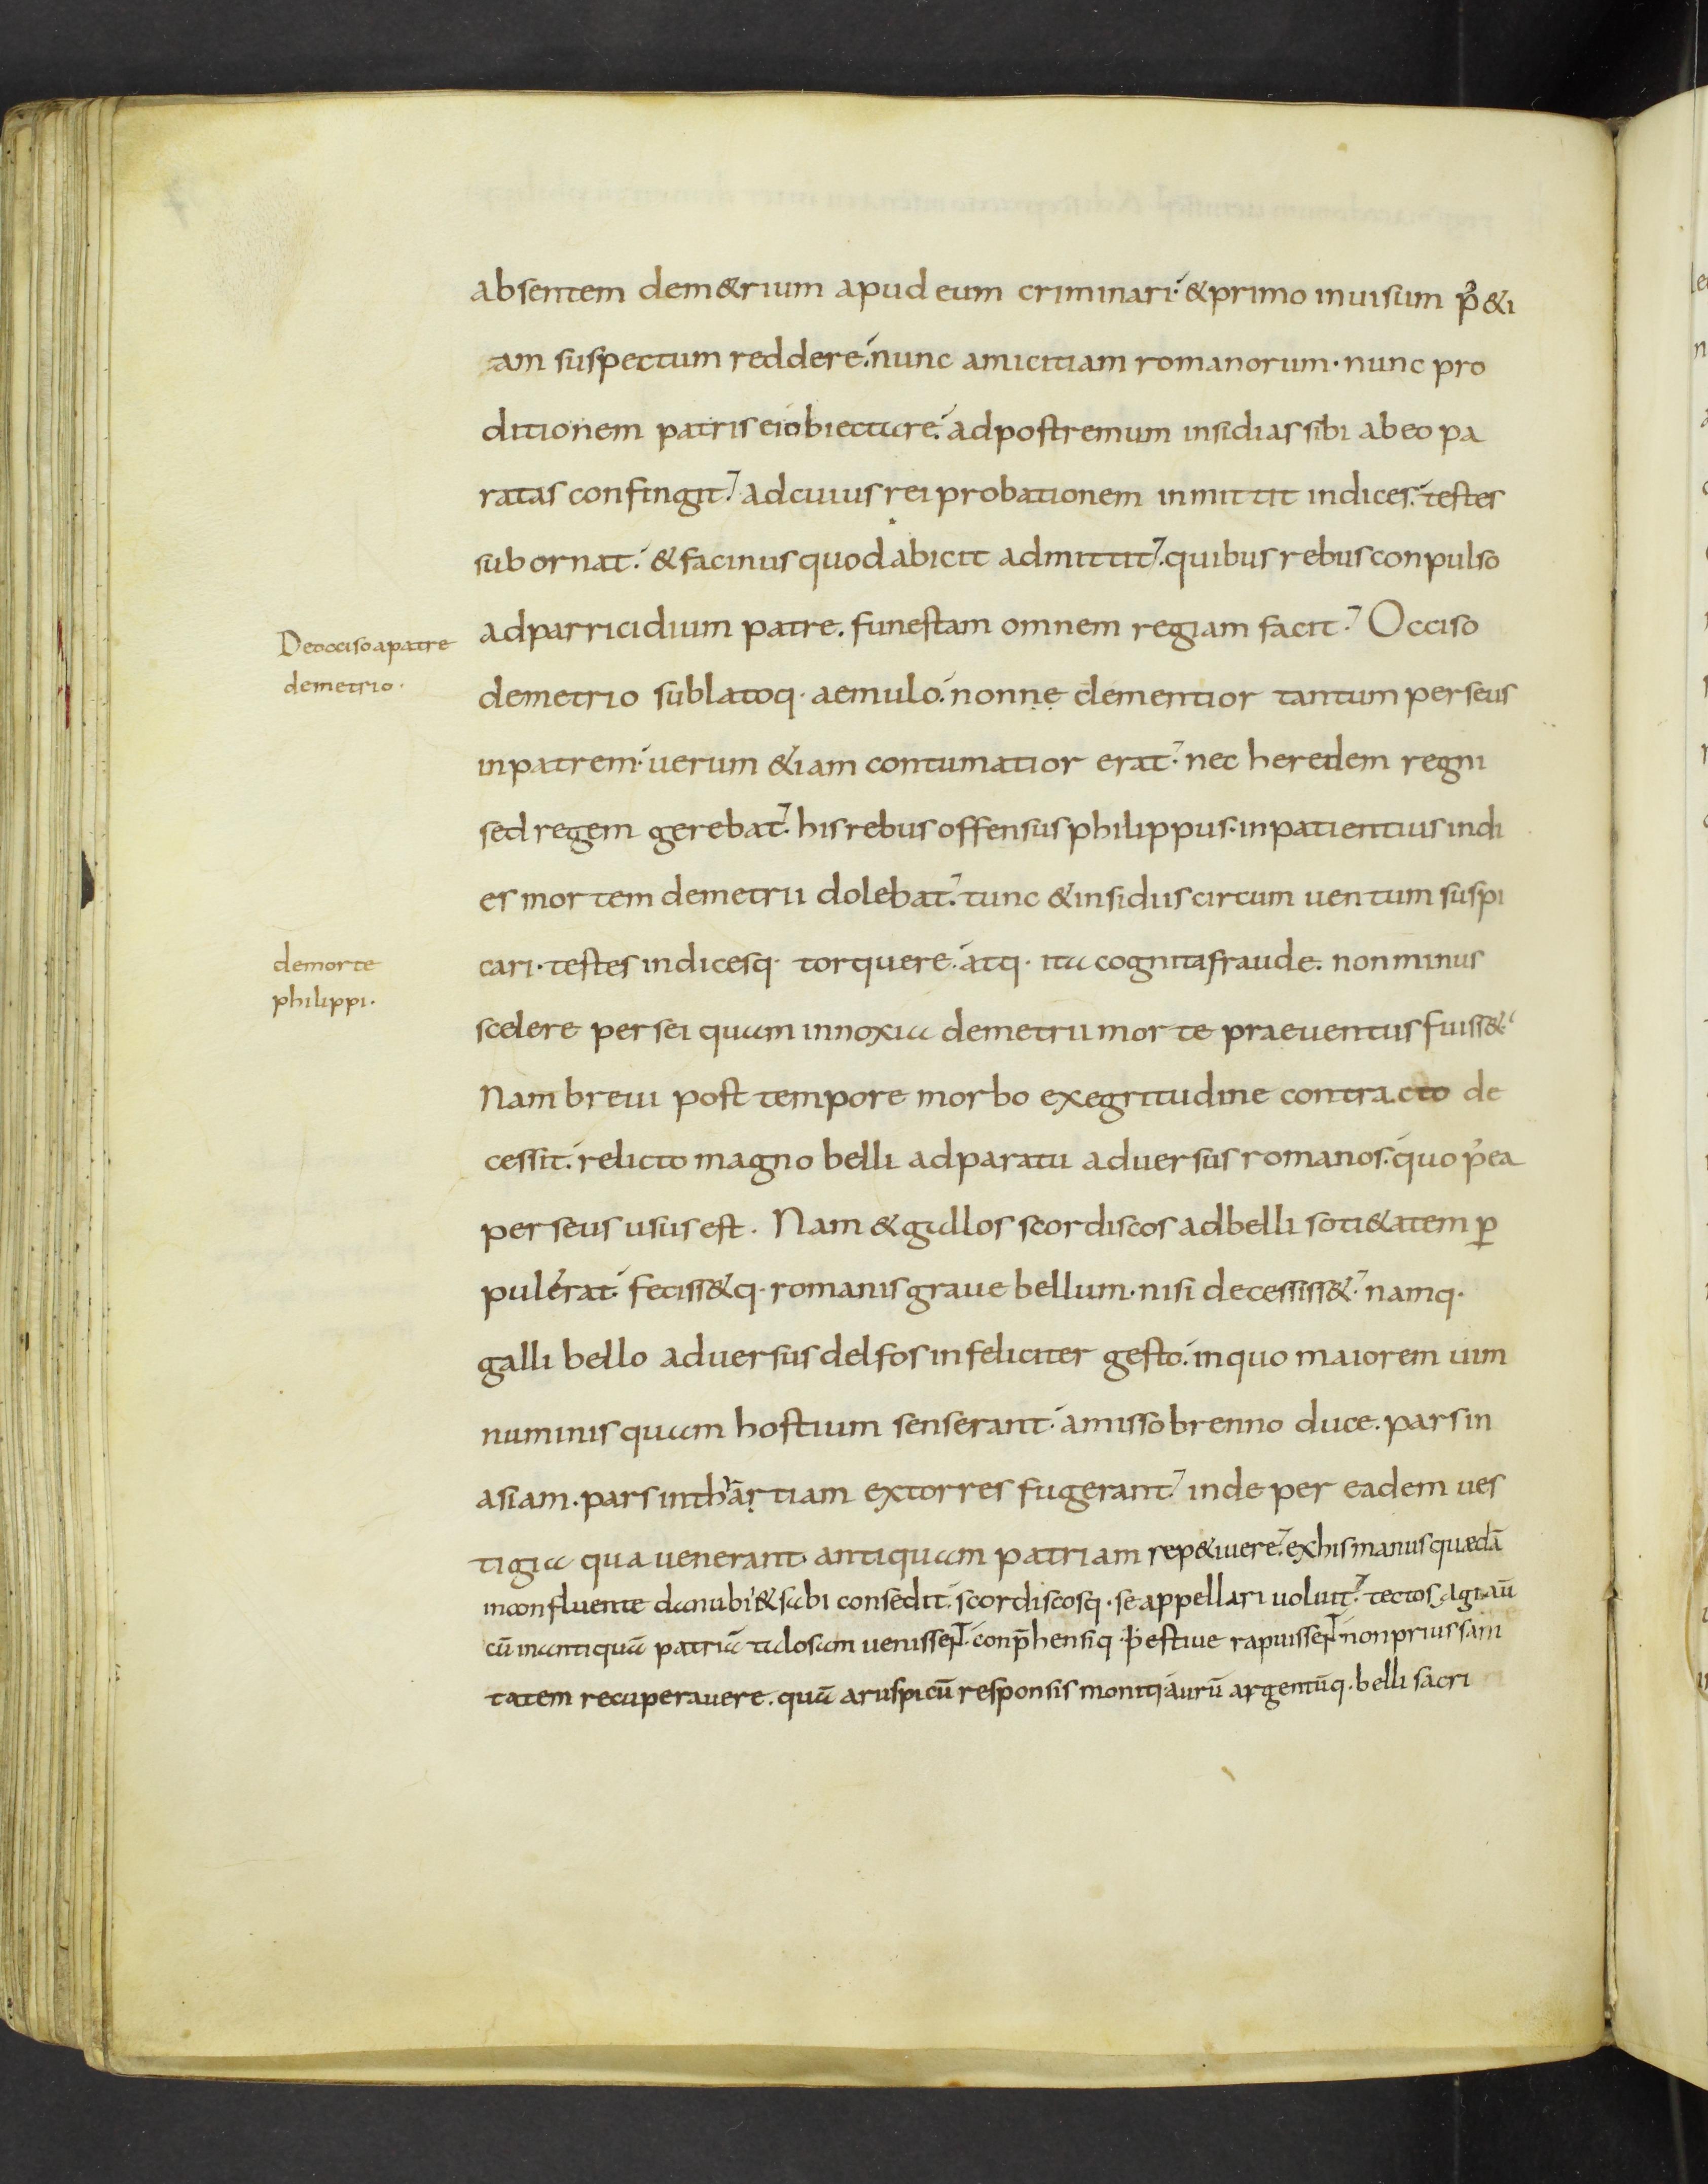 absentem dem&rium apud eum criminari. & primo inuisum p̄ &i
am suspectum reddere. nunc amicitiam romanorum. nunc pro
ditionem patris ei obiectare. ad postremum insidias sibi ab eo pa
ratas confingit. ad cuius rei probationem inmittit indices. testes
subornat. & facinus quod abicit admittit. quibus rebus conpulso
De occiso a patre
demetrio.
ad parricidium patre. funestam omnem regiam facit. Occiso
demetrio sublatoq. aemulo. nonne clementior tantum perseus
in patrem. uerum &iam contumatior erat. nec heredem regni
sed regem gerebat. his rebus offensus philippus. inpatientius indi
es mortem demetrii dolebat. tunc & insidiis circumuentum suspi
de morte
philippi.
cari. testes indicesq. torquere. atq. ita cognita fraude. non minus
scelere persei quam innoxia demetrii morte praeuentus fuiss&.
Nam breui post tempore morbo ex egritudine contracto de
cessit. relicto magno belli adparatu aduersus romanos. quo p̓ea
perseus usus est. Nam & gallos scordiscos ad belli soti&atem ꝑ
pulerat. feciss&q. romanis graue bellum. nisi decessiss&. namq.
galli bello aduersus delfos infeliciter gesto. in quo maiorem uim
numinis quam hostium senserant. amisso brenno duce. pars in
asiam. pars in thrartiam extorres fugerant. inde per eadem ues
tigia qua uenerant. antiquam patriam rep&iuere. ex his manus quaedā
in confluente danubi & sabi consedit. scordiscosq. se appellari uoluit. tectosagi aū
cū in antiquā patriā tolosam uenissent. conp̄hensiq. pestiue rapuissent. non prius sani
tatem recuperauere. quā aruspicū responsis moniti aurū argentūq. belli sacri